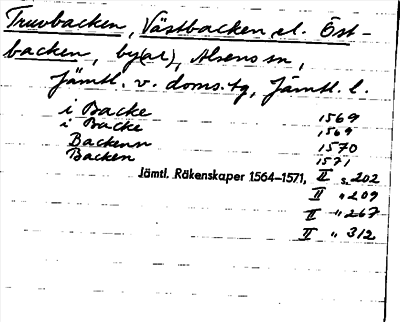 Truvbacken, Västbacken el. Öst-
backen, by(ar), Alsens sn,
Jämtl. v. doms.tg, Jämtl. l.
i Backe 1569
i Backe 1569
Backenn 1570
Backen 1571
Jämtl. Räkenskaper 1564–1571, II s. 202
II " 209
II " 267
II " 312